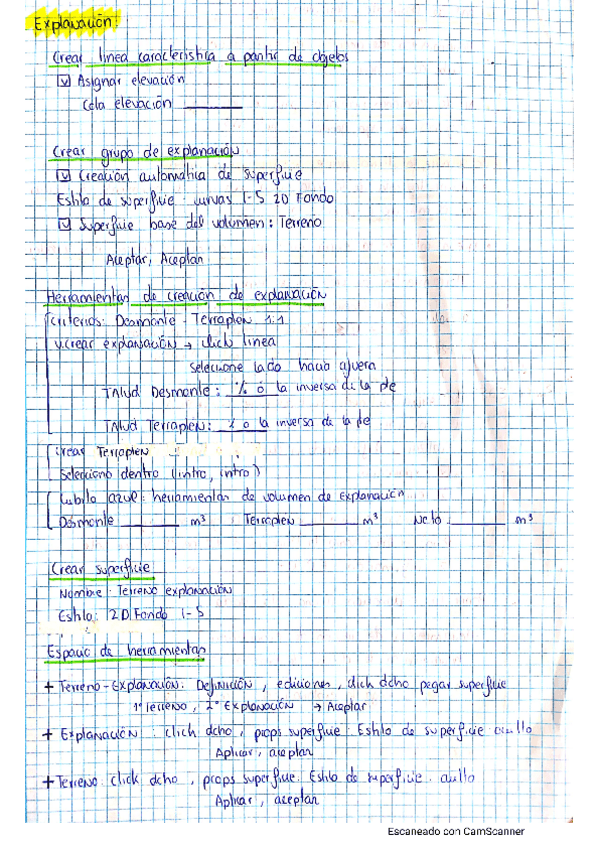 Explanación:
Crear línea característica a partir de objetos
☑ Asignar elevación
Cota elevación ______
Crear grupo de explanación
☑ Creación automática de superficie
Estilo de superficie curvas 1-5 2D Fondo
☑ Superficie base del volumen: Terreno
Aceptar, Aceptar
Herramientas de creación de explanación
Criterios: Desmonte - Terraplen 1:1
crear explanación → click linea
Seleccione lado hacia afuera
Talud Desmonte: % ó la inversa de la pte
Talud Terraplen: % o la inversa de la pte
Crear Terraplen
Selecciono dentro (intro, intro)
Cubito azul: herramientas de volumen de explanación
Desmonte ______ m³ Terraplen ______ m³ Neto ______ m³
Crear superficie
Nombre: Terreno explanación
Estilo: 2D Fondo 1-5
Espacio de herramientas
+ Terreno-Explanación: Definición, ediciones, click dcho pegar superficie
1º Terreno, 2º Explanación → Aceptar
+ Explanación: click dcho, props superficie. Estilo de superficie oculto
Aplicar, aceptar
+ Terreno click dcho, props superficie. Estilo de superficie. oculto
Aplicar, aceptar
Escaneado con CamScanner